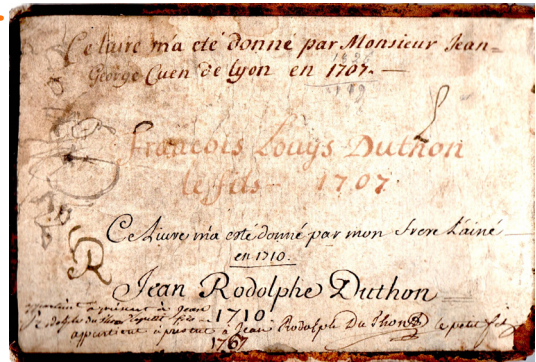 Ce livre m'a eté donné par Monsieur Jean=
George Cuen de Lyon en 1707.—
François Louys Duthon
le fils 1707.
Ce Livre m'a esté donné par mon frere L'ainé
en 1710.
Jean Rodolphe Duthon
1710.
appartient à présent à Jean
Rodolph
appartient à present à Jean Rodolph DuThon le petit fils
1767